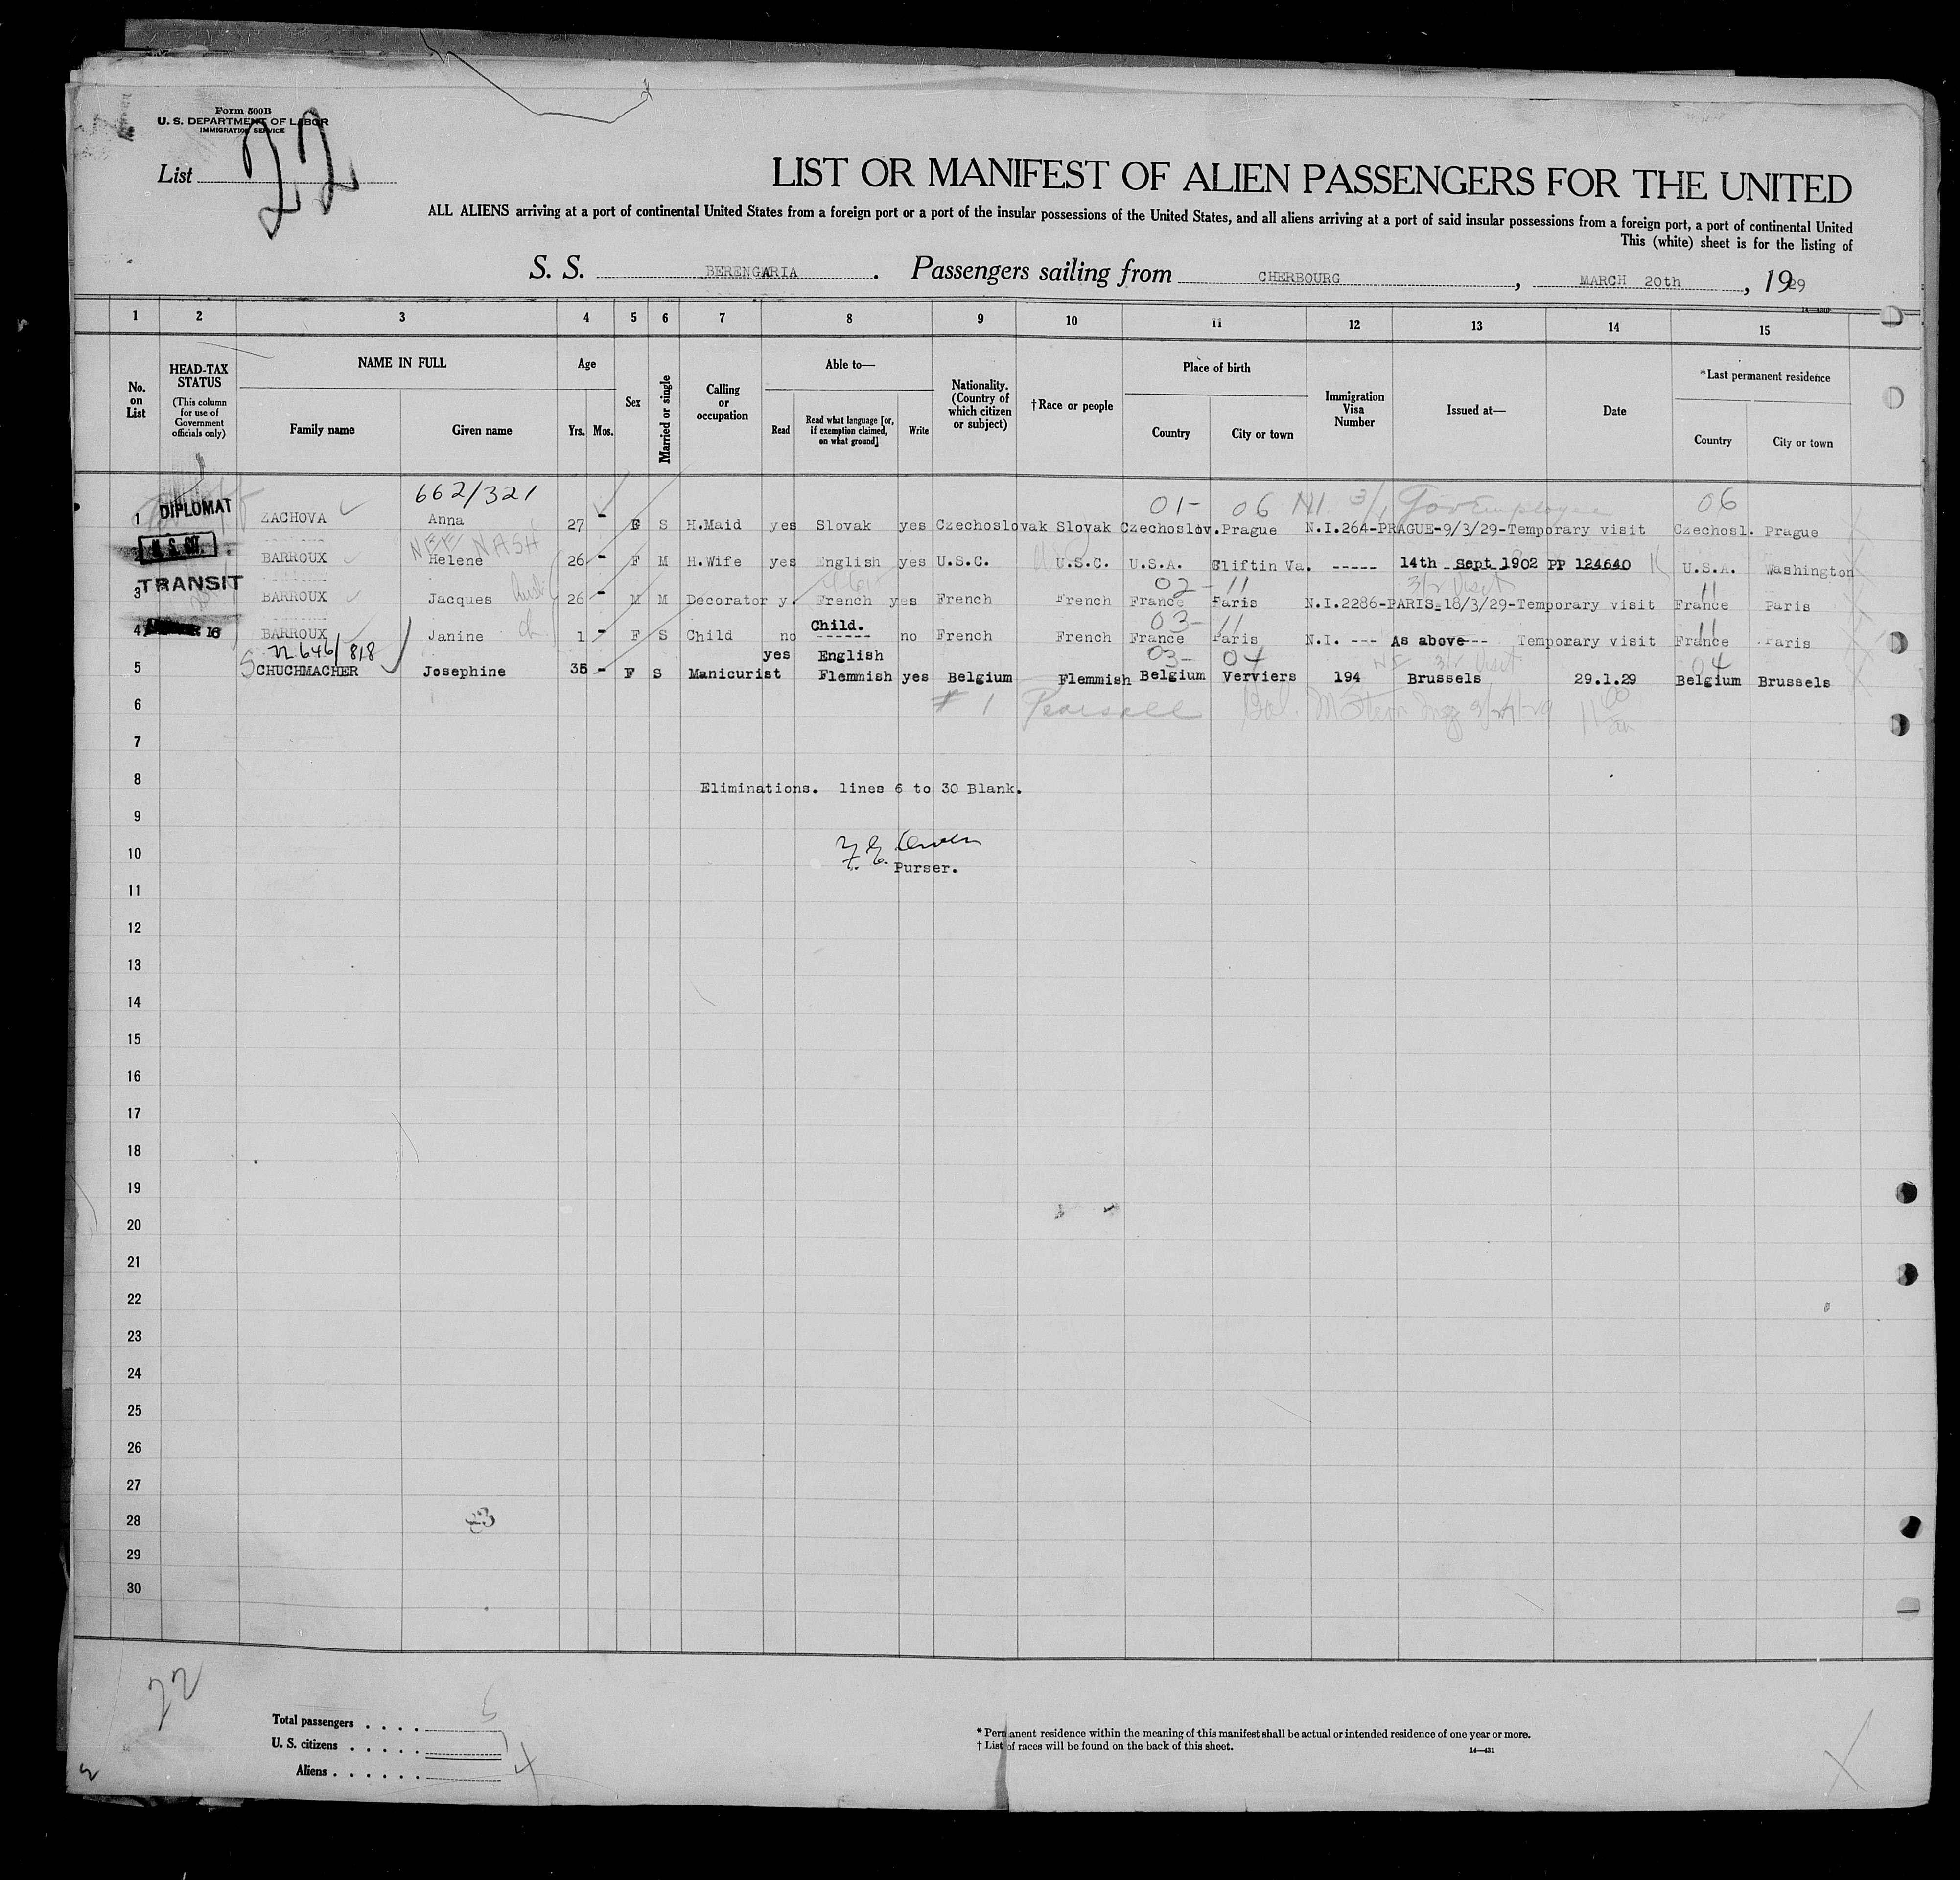 Form 500B
U. S. DEPARTMENT OF LABOR
IMMIGRATION SERVICE
List 22
LIST OR MANIFEST OF ALIEN PASSENGERS FOR THE UNITED
ALL ALIENS arriving at a port of continental United States from a foreign port or a port of the insular possessions of the United States, and all aliens arriving at a port of said insular possessions from a foreign port, a port of continental United
This (white) sheet is for the listing of
S. S. BERENGARIA . Passengers sailing from CHERBOURG , MARCH 20th , 1929
1 2 3 4 5 6 7 8 9 10 11 12 13 14 15
No. on List
HEAD-TAX STATUS (This column for use of Government officials only)
NAME IN FULL Family name Given name
Age Yrs. Mos.
Sex
Married or single
Calling or occupation
Able to— Read Read what language [or, if exemption claimed, on what ground] Write
Nationality. (Country of which citizen or subject)
†Race or people
Place of birth Country City or town
Immigration Visa Number
Issued at—
Date
*Last permanent residence Country City or town
662/321 01- 06 NI 3/1 Gov Employee 06
1 DIPLOMAT ZACHOVA Anna 27 - F S H.Maid yes Slovak yes Czechoslovak Slovak Czechoslov. Prague N.I.264-PRAGUE-9/3/29-Temporary visit Czechosl. Prague
NEE NASH
BARROUX Helene 26 - F M H.Wife yes English yes U.S.C. U.S.C. U.S.A. Cliftin Va. ----- 14th Sept 1902 PP 124640 U.S.A. Washington
TRANSIT 02-11 11
3 BARROUX Jacques 26 - M M Decorator y. French yes French French France Paris N.I.2286-PARIS-18/3/29-Temporary visit France Paris
Child. 03-11 11
4 BARROUX Janine 1 - F S Child no ------ no French French France Paris N.I. --- As above--- Temporary visit France Paris
22 646/818 yes English 03- 04 3/2 Visit 04
5 SCHUCHMACHER Josephine 35 - F S Manicurist Flemmish yes Belgium Flemmish Belgium Verviers 194 Brussels 29.1.29 Belgium Brussels
6 # 1 Pearsall
7
8 Eliminations. lines 6 to 30 Blank.
9
10 Purser.
11
12
13
14
15
16
17
18
19
20
21
22
23
24
25
26
27
28
29
30
22
Total passengers . . . . 5
U. S. citizens . . . . . 1
Aliens . . . . . . 4
* Permanent residence within the meaning of this manifest shall be actual or intended residence of one year or more.
† List of races will be found on the back of this sheet.
14—431